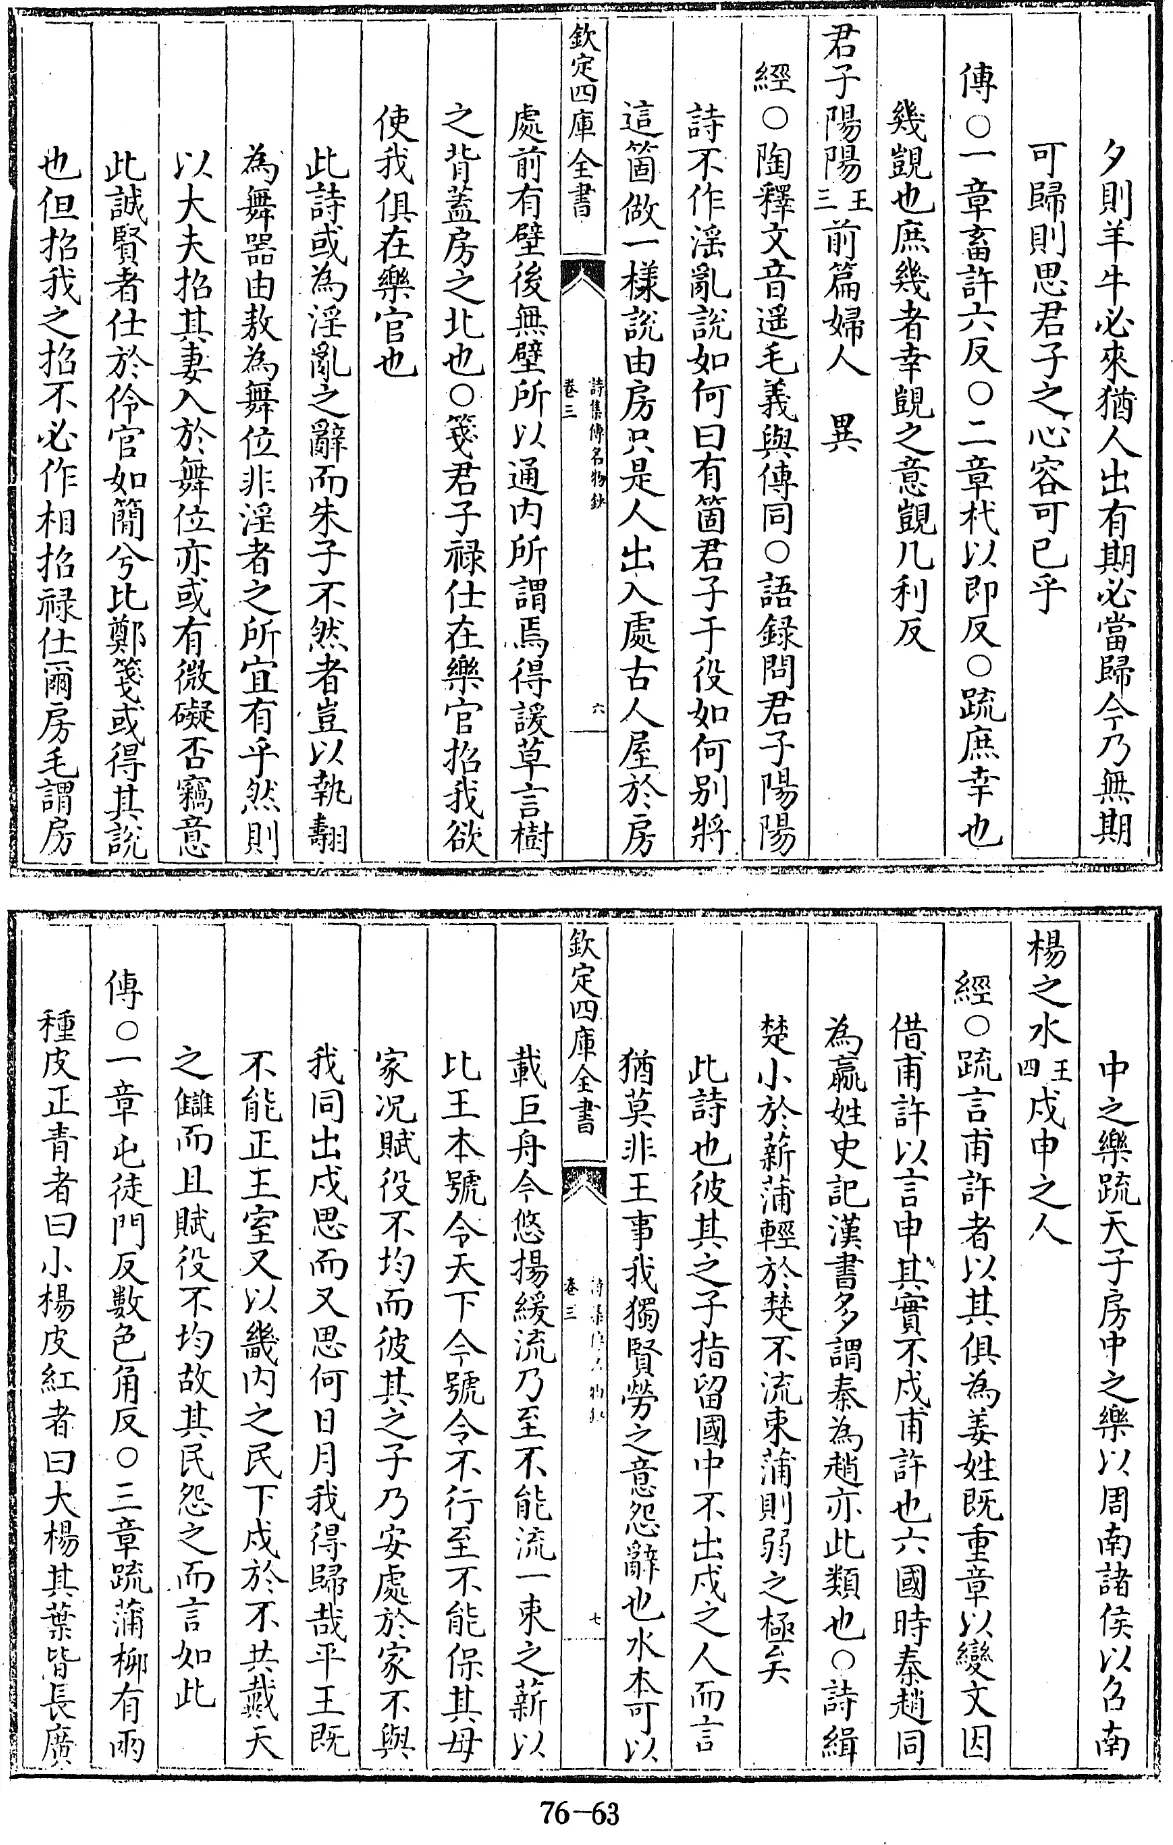 夕則羊牛必來猶人出有期必當歸今乃無期
可歸則思君子之心容可已乎
傳○一章畜許六反○二章杙以即反○疏庶幸也
幾覬也庶幾者幸覬之意覬几利反
君子陽陽王三前篇婦人　異
經○陶釋文音遥毛義與傳同○語録問君子陽陽
詩不作淫亂說如何曰有箇君子于役如何別將
這箇做一樣說由房只是人出入處古人屋於房
欽定四庫全書
詩集傳名物鈔
卷三
六
處前有壁後無壁所以通内所謂焉得諼草言樹
之背蓋房之北也○箋君子禄仕在樂官招我欲
使我俱在樂官也
此詩或為淫亂之辭而朱子不然者豈以執翿
為舞器由敖為舞位非淫者之所宜有乎然則
以大夫招其妻入於舞位亦或有微礙否竊意
此誠賢者仕於伶官如簡兮比鄭箋或得其說
也但招我之招不必作相招禄仕爾房毛謂房
中之樂疏天子房中之樂以周南諸侯以召南
楊之水王四戍申之人
經○疏言甫許者以其俱為姜姓既重章以變文因
借甫許以言申其實不戍甫許也六國時秦趙同
為嬴姓史記漢書多謂秦為趙亦此類也○詩緝
楚小於薪蒲輕於楚不流束蒲則弱之極矣
此詩也彼其之子指留國中不出戍之人而言
猶莫非王事我獨賢勞之意怨辭也水本可以
欽定四庫全書
詩集傳名物鈔
卷三
七
載巨舟今悠揚緩流乃至不能流一束之薪以
比王本號令天下今號令不行至不能保其母
家况賦役不均而彼其之子乃安處於家不與
我同出戍思而又思何日月我得歸哉平王既
不能正王室又以畿内之民下戍於不共戴天
之讎而且賦役不均故其民怨之而言如此
傳○一章屯徒門反數色角反○三章疏蒲柳有兩
種皮正青者曰小楊皮紅者曰大楊其葉皆長廣
76-63